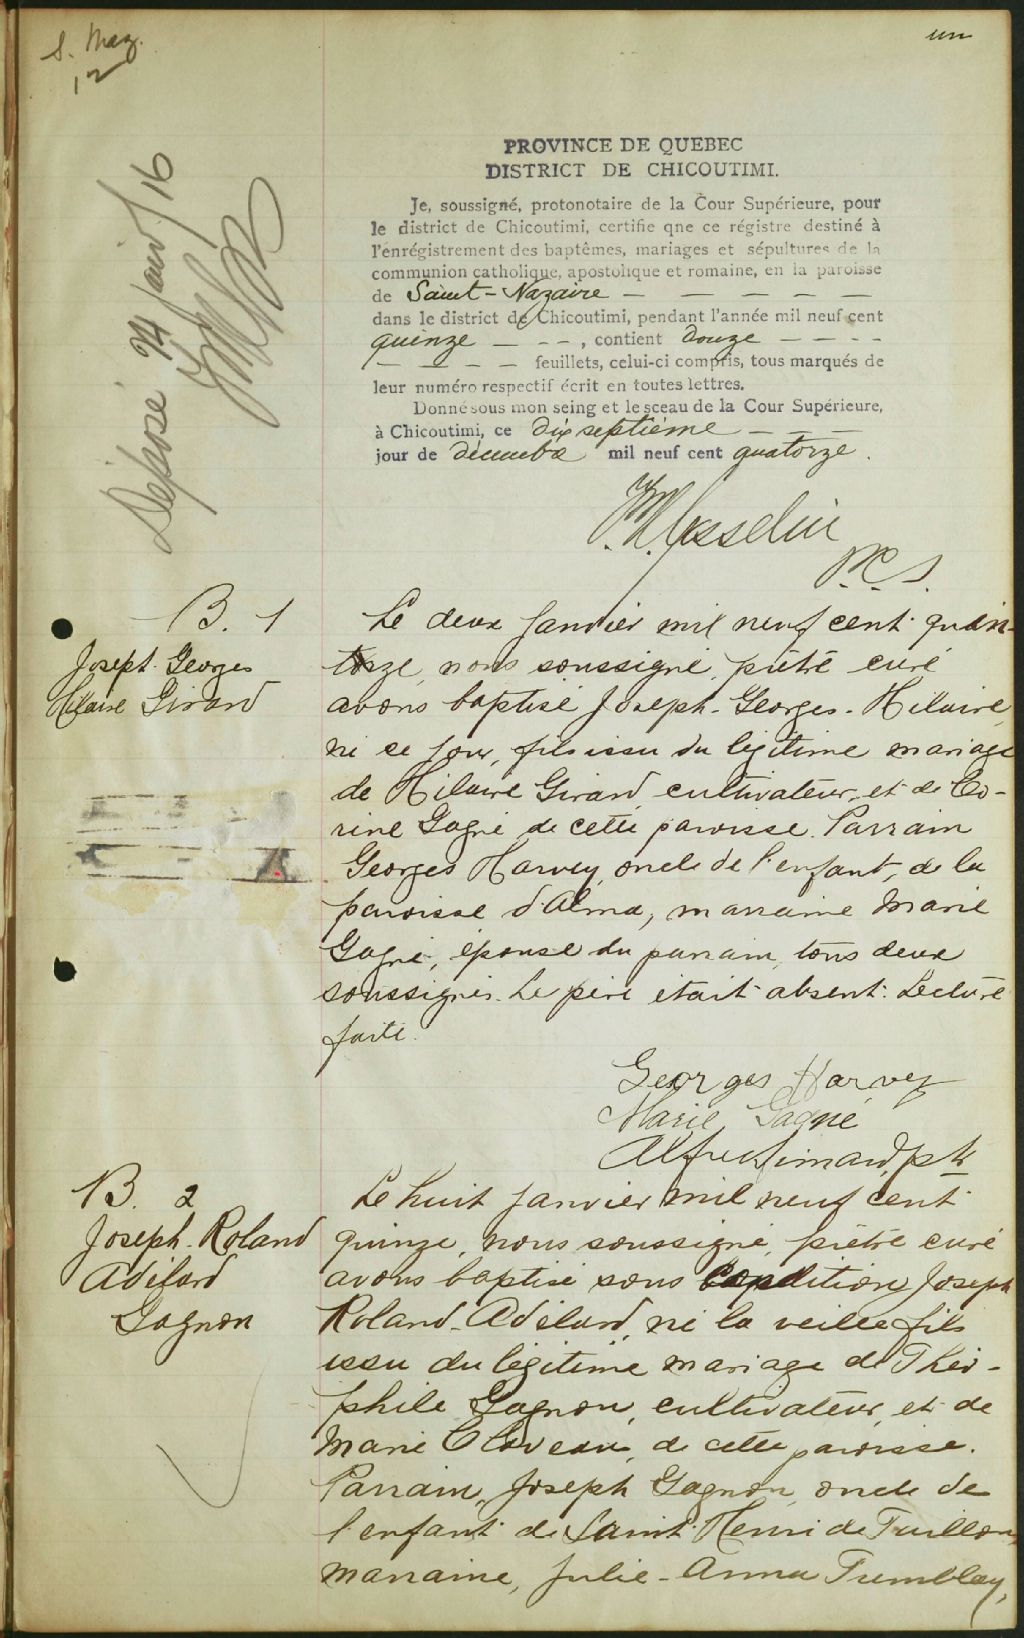 S. Naz.
12
un
Déposé 14 janv/16
PROVINCE DE QUEBEC
DISTRICT DE CHICOUTIMI.
Je, soussigné, protonotaire de la Cour Supérieure, pour
le district de Chicoutimi, certifie qne ce régistre destiné à
l'enrégistrement des baptêmes, mariages et sépultures de la
communion catholique, apostolique et romaine, en la paroisse
de Saint-Nazaire — — — — —
dans le district de Chicoutimi, pendant l'année mil neuf cent
quinze — - -, contient douze - - - -
— — — — feuillets, celui-ci compris, tous marqués de
leur numéro respectif écrit en toutes lettres.
Donné sous mon seing et le sceau de la Cour Supérieure,
à Chicoutimi, ce dix septième — — —
jour de décembre mil neuf cent quatorze.
P.C.S.
B. 1
Joseph-Georges
Hilaire Girard
Le deux janvier mil neuf cent quin-
ze, nous soussigné, prêtre curé
avons baptisé Joseph-Georges-Hilaire,
né ce jour, fils issu du légitime mariage
de Hilaire Girard, cultivateur, et de Co-
rine Gagné de cette paroisse. Parrain
Georges Harvey, oncle de l'enfant, de la
paroisse d'Alma, marraine Marie
Gagné, épouse du parrain, tous deux
soussignés. Le père était absent. Lecture
faite.
Georges Harvey
Marie Gagné
Alfred Simard, ptre
B. 2
Joseph-Roland
Adélard
Gagnon
Le huit janvier mil neuf cent
quinze, nous soussigné, prêtre curé
avons baptisé sous condition Joseph
Roland-Adélard, né la veille fils
issu du légitime mariage de Théo-
phile Gagnon, cultivateur, et de
Marie Claveau, de cette paroisse.
Parrain, Joseph Gagnon, oncle de
l'enfant de Saint-Henri de Taillon,
marraine, Julie-Anna Tremblay,